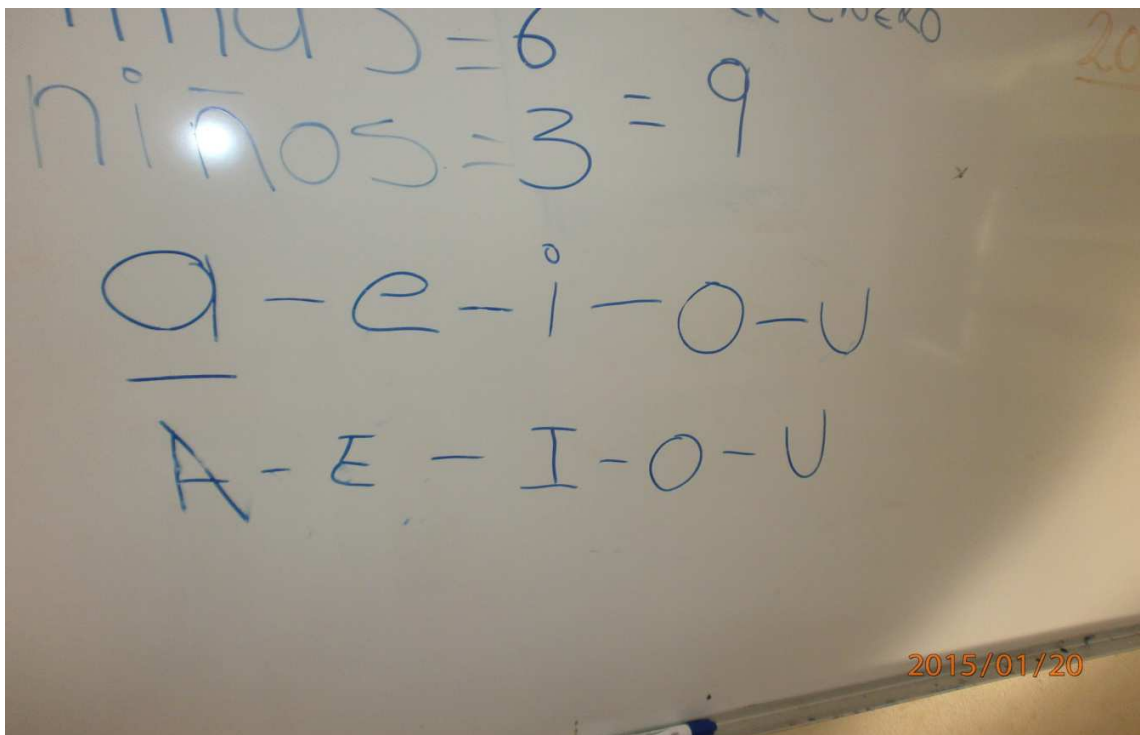 = 6
ENERO
20
niños = 3 = 9
a - e - i - o - u
A - E - I - O - U
2015/01/20